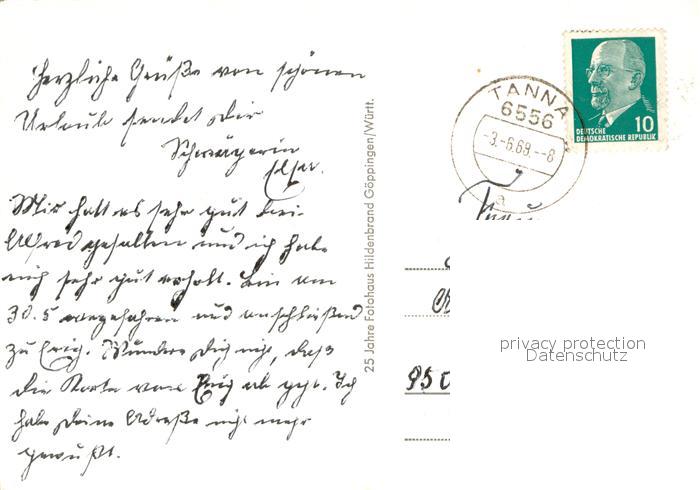 Herzliche Grüße vom schönen
Urlaub sendet Dir
Schwägerin
Mir hat es sehr gut bei
Alfred gefallen und ich habe
mich sehr gut erholt. Bin am
30.5 angefahren und anschließend
zu Erig. Wundere Dich nicht, daß
die Karte von Erig ab geht. Ich
habe Deine Adreße nicht mehr
gewußt.
25 Jahre Fotohaus Hildenbrand Göppingen/Württ.
TANNA
6556
-3.-6.69.--8
a
DEUTSCHE
DEMOKRATISCHE REPUBLIK 10
privacy protection
Datenschutz
950